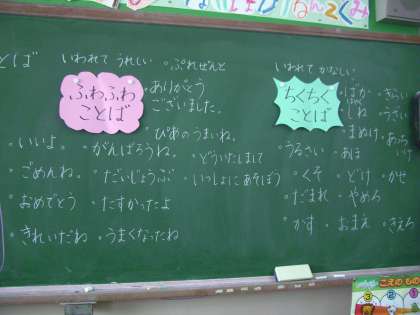 ねんてくみ
とば
いわれて うれしい
・ぷれぜんと
ふわふわ
ことば
・ありがとう
ございました。
・ぴあのうまいね。
・いいよ。
・がんばろうね。
・どういたしまして
・ごめんね。
・だいじょうぶ
・いっしょに あそぼう
・おめでとう
・たすかったよ
・きれいだね
・うまくなったね
いわれて かなしい
ちくちく
ことば
・ばか
・きらい
・しね
・うさい
・まぬけ
・あっち
いけ
・うるさい
・あほ
・くそ
・どけ
・かせ
・だまれ
・やめろ
・かす
・おまえ
・きえろ
こえのもの
3
2
1